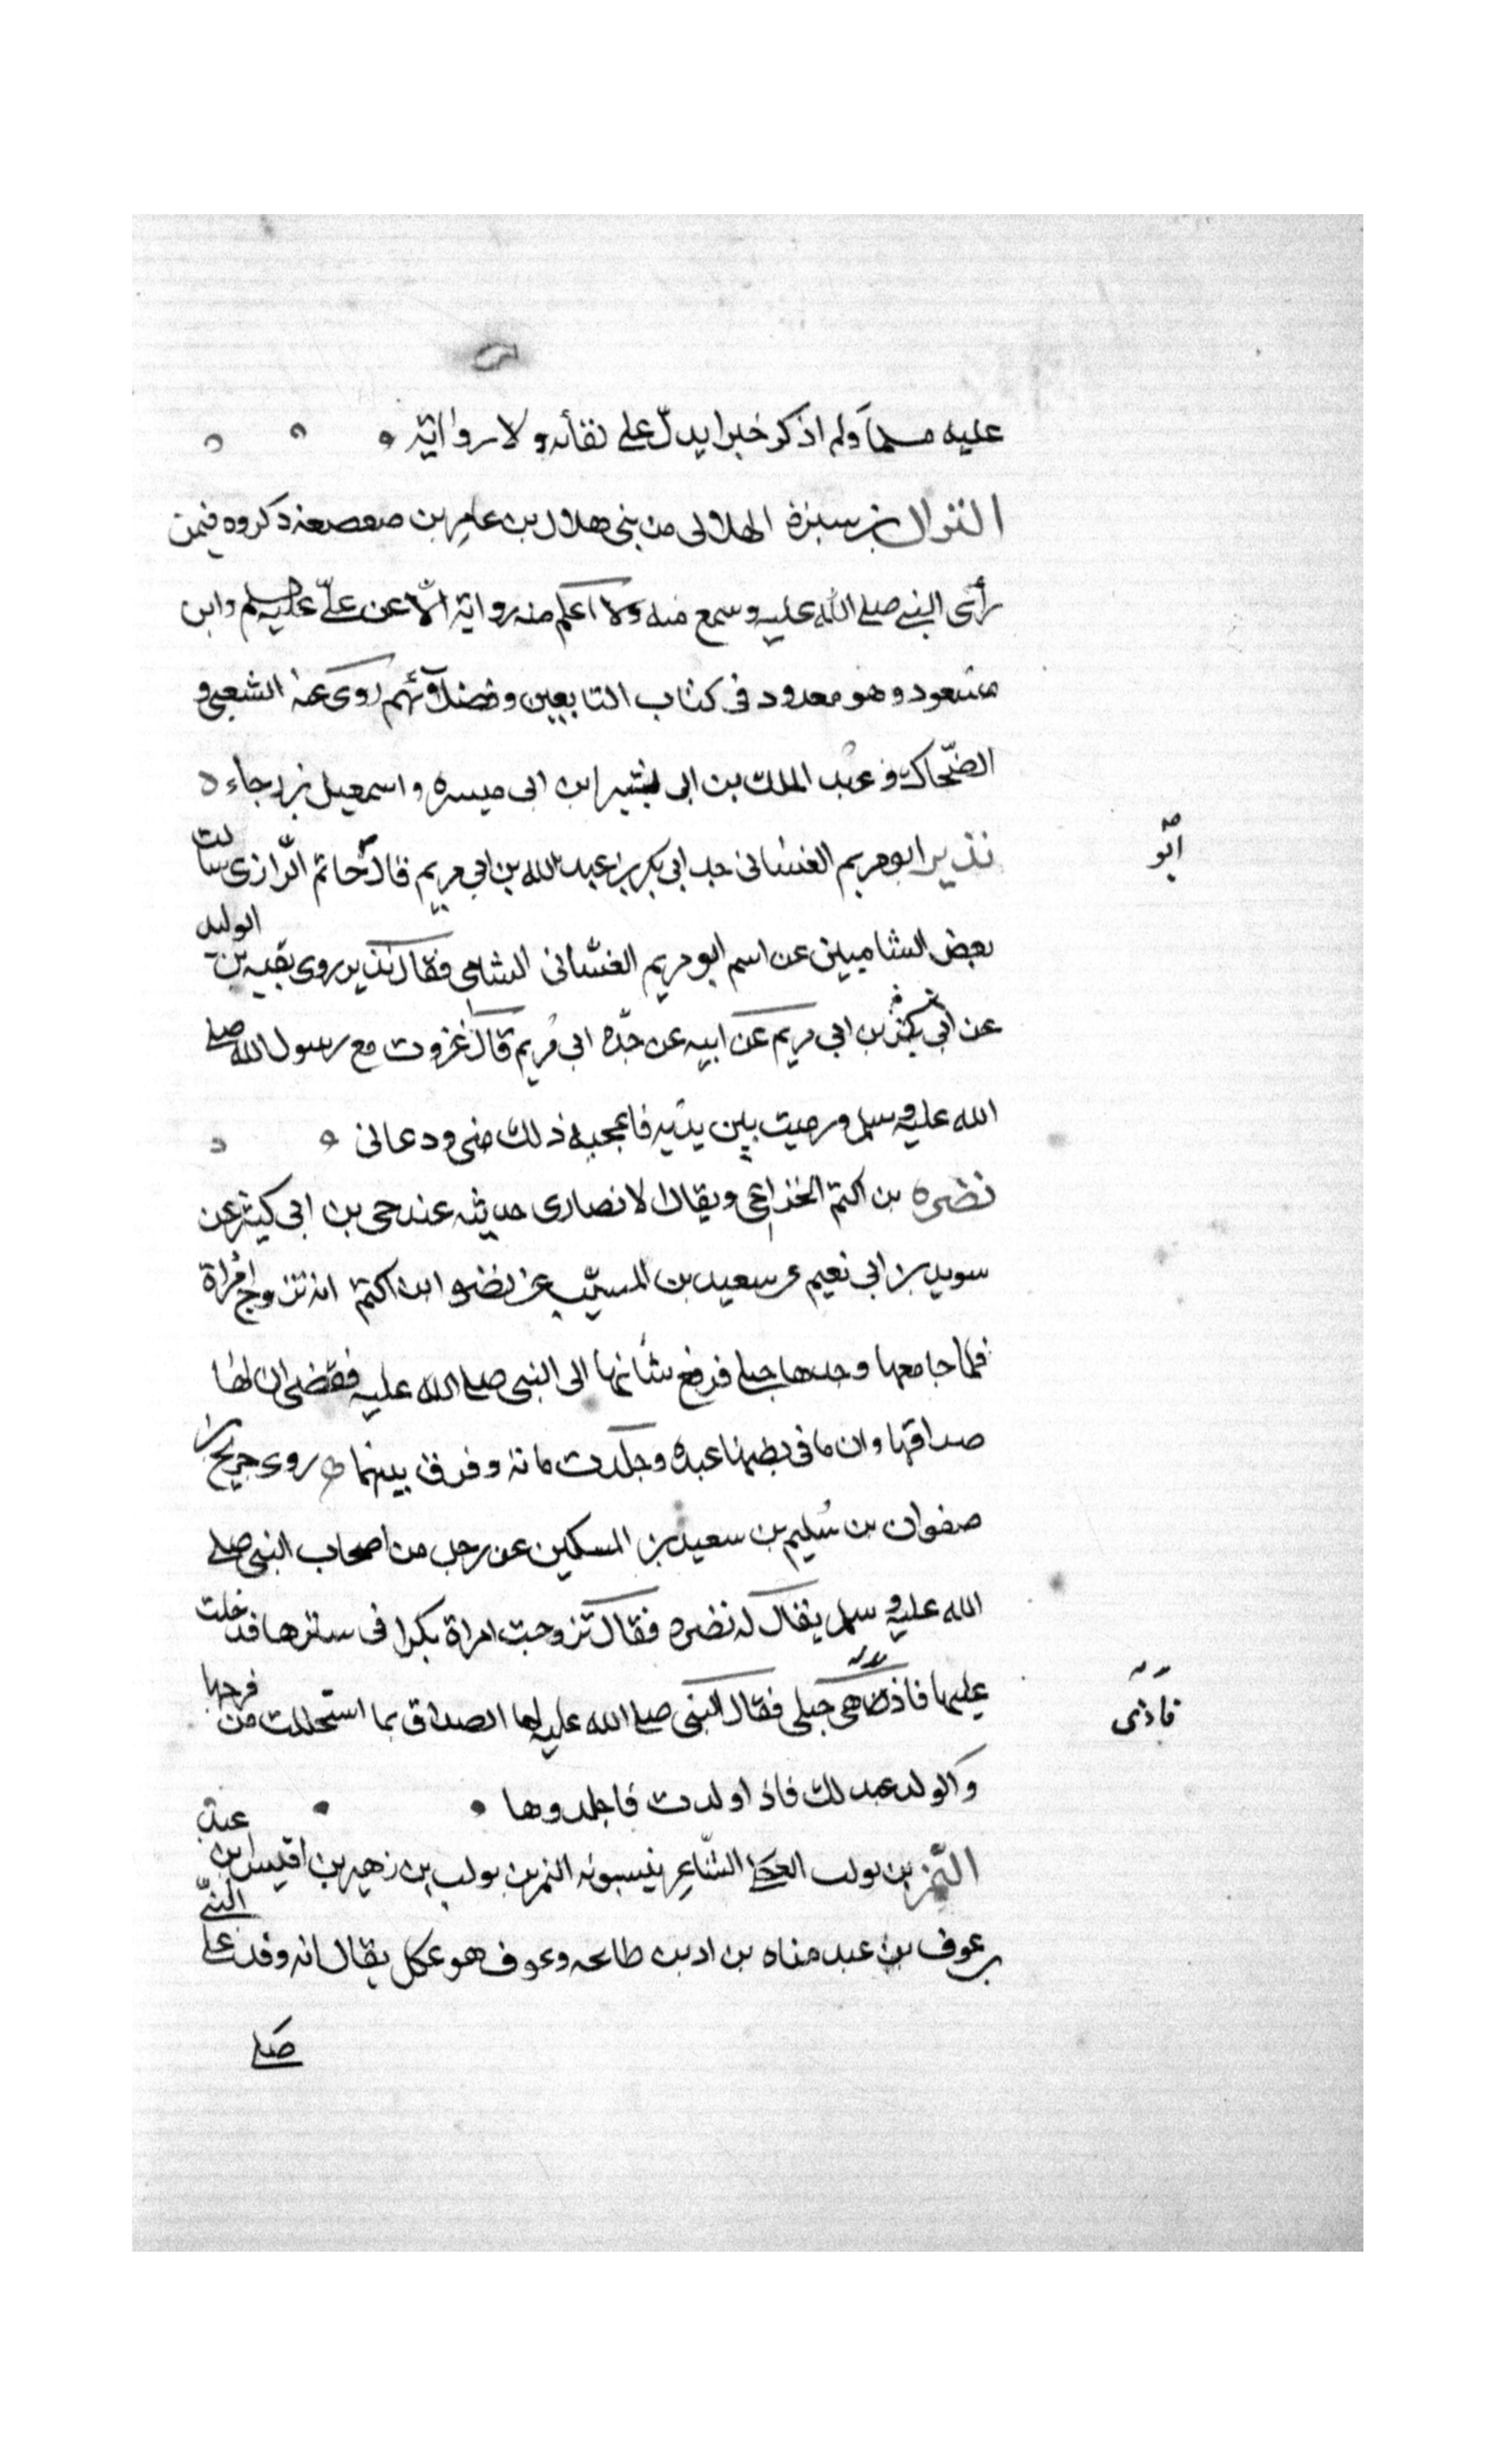 عليه مسلما ولم اذكر خبرا يدلّ على لقائه ولا رواية
النزال بن سبرة الهلالى من بنى هلال بن عامر بن صعصعة ذكروه فيمن
رأى النبى صلى الله عليه وسمع منه ولا اعلم منه رواية الّا عن علىّ عليه السلم وابن
مسعود وهو معدود فى كتاب التابعين وفضلائهم روى عنه الشعبى و
الضّحاك و عبد الملك بن ابى ابن ابى ميسره واسمعيل بن رجاء
نذير ابو مريم الغسّانى جد ابى بكر بن عبد الله بن ابى مريم قال حاتم الرّازى سالت
ابو
بعض الشاميين عن اسم ابو مريم الغسّانى الشامى فقال نذير روى بقيه بن الوليد
عن ابى بكر بن ابى مريم عن ابيه عن جدّه ابى مريم قال غزوت مع رسول الله صلى
الله عليه وسلم ورميت بين يديه فاعجبه ذلك منى ودعانى
نضره بن اكتم الخزاعى ويقال الانصارى حديثه عند يحى بن ابى كيثر عن
سويد بن ابى نعيم عن سعيد بن المسيّب عن نضره ابن اكتم انه تزوج امرأة
فلما جامعها وجدها حبلى فرفع شأنها الى النبى صلى الله عليه فقضى ان لها
صداقها وان ما فى بطنها عبده وجلدت مائة وفرق بينهما روى جريج بن
صفوان بن سُليم بن سعيد بن المسكين عن رجل من اصحاب النبى صلى
الله عليه وسلم يقال له نضره فقال تزوجت امراة بكرا فى سترها فدخلت
عليها فاذا هى حبلى فقال النبى صلى الله عليه لها الصداق بما استحللت من فرجها
فاذى
والولد عبد لك فاذا ولدت فاجلدوها
النّمر بن تولب الشّاعر ينسبونه النمر بن تولب بن زهير بن اقيس بن عبد
بن عوف بن عبد مناه بن اد بن طابحه وعوف هو عكل يقال انه وفد على النبىّ
صلى